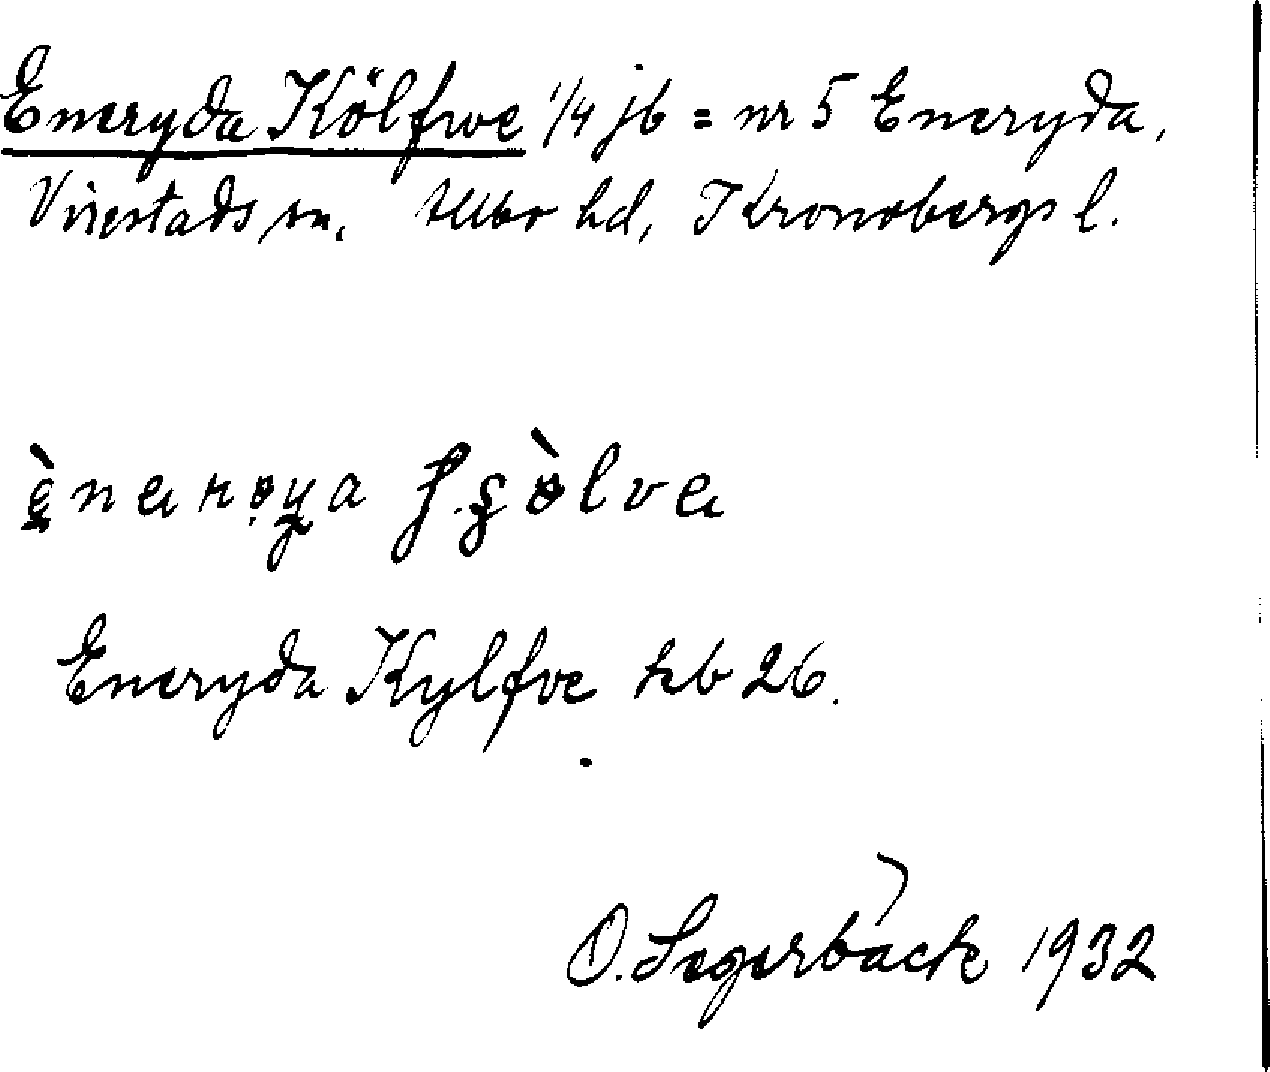 Eneryda Kölfwe 1/4 jb = nr 5 Eneryda,
Virestads sn. Allbo hd, Kronobergs l.
Eneryda Kylfve kb 26.
O. Segerbäck 1932